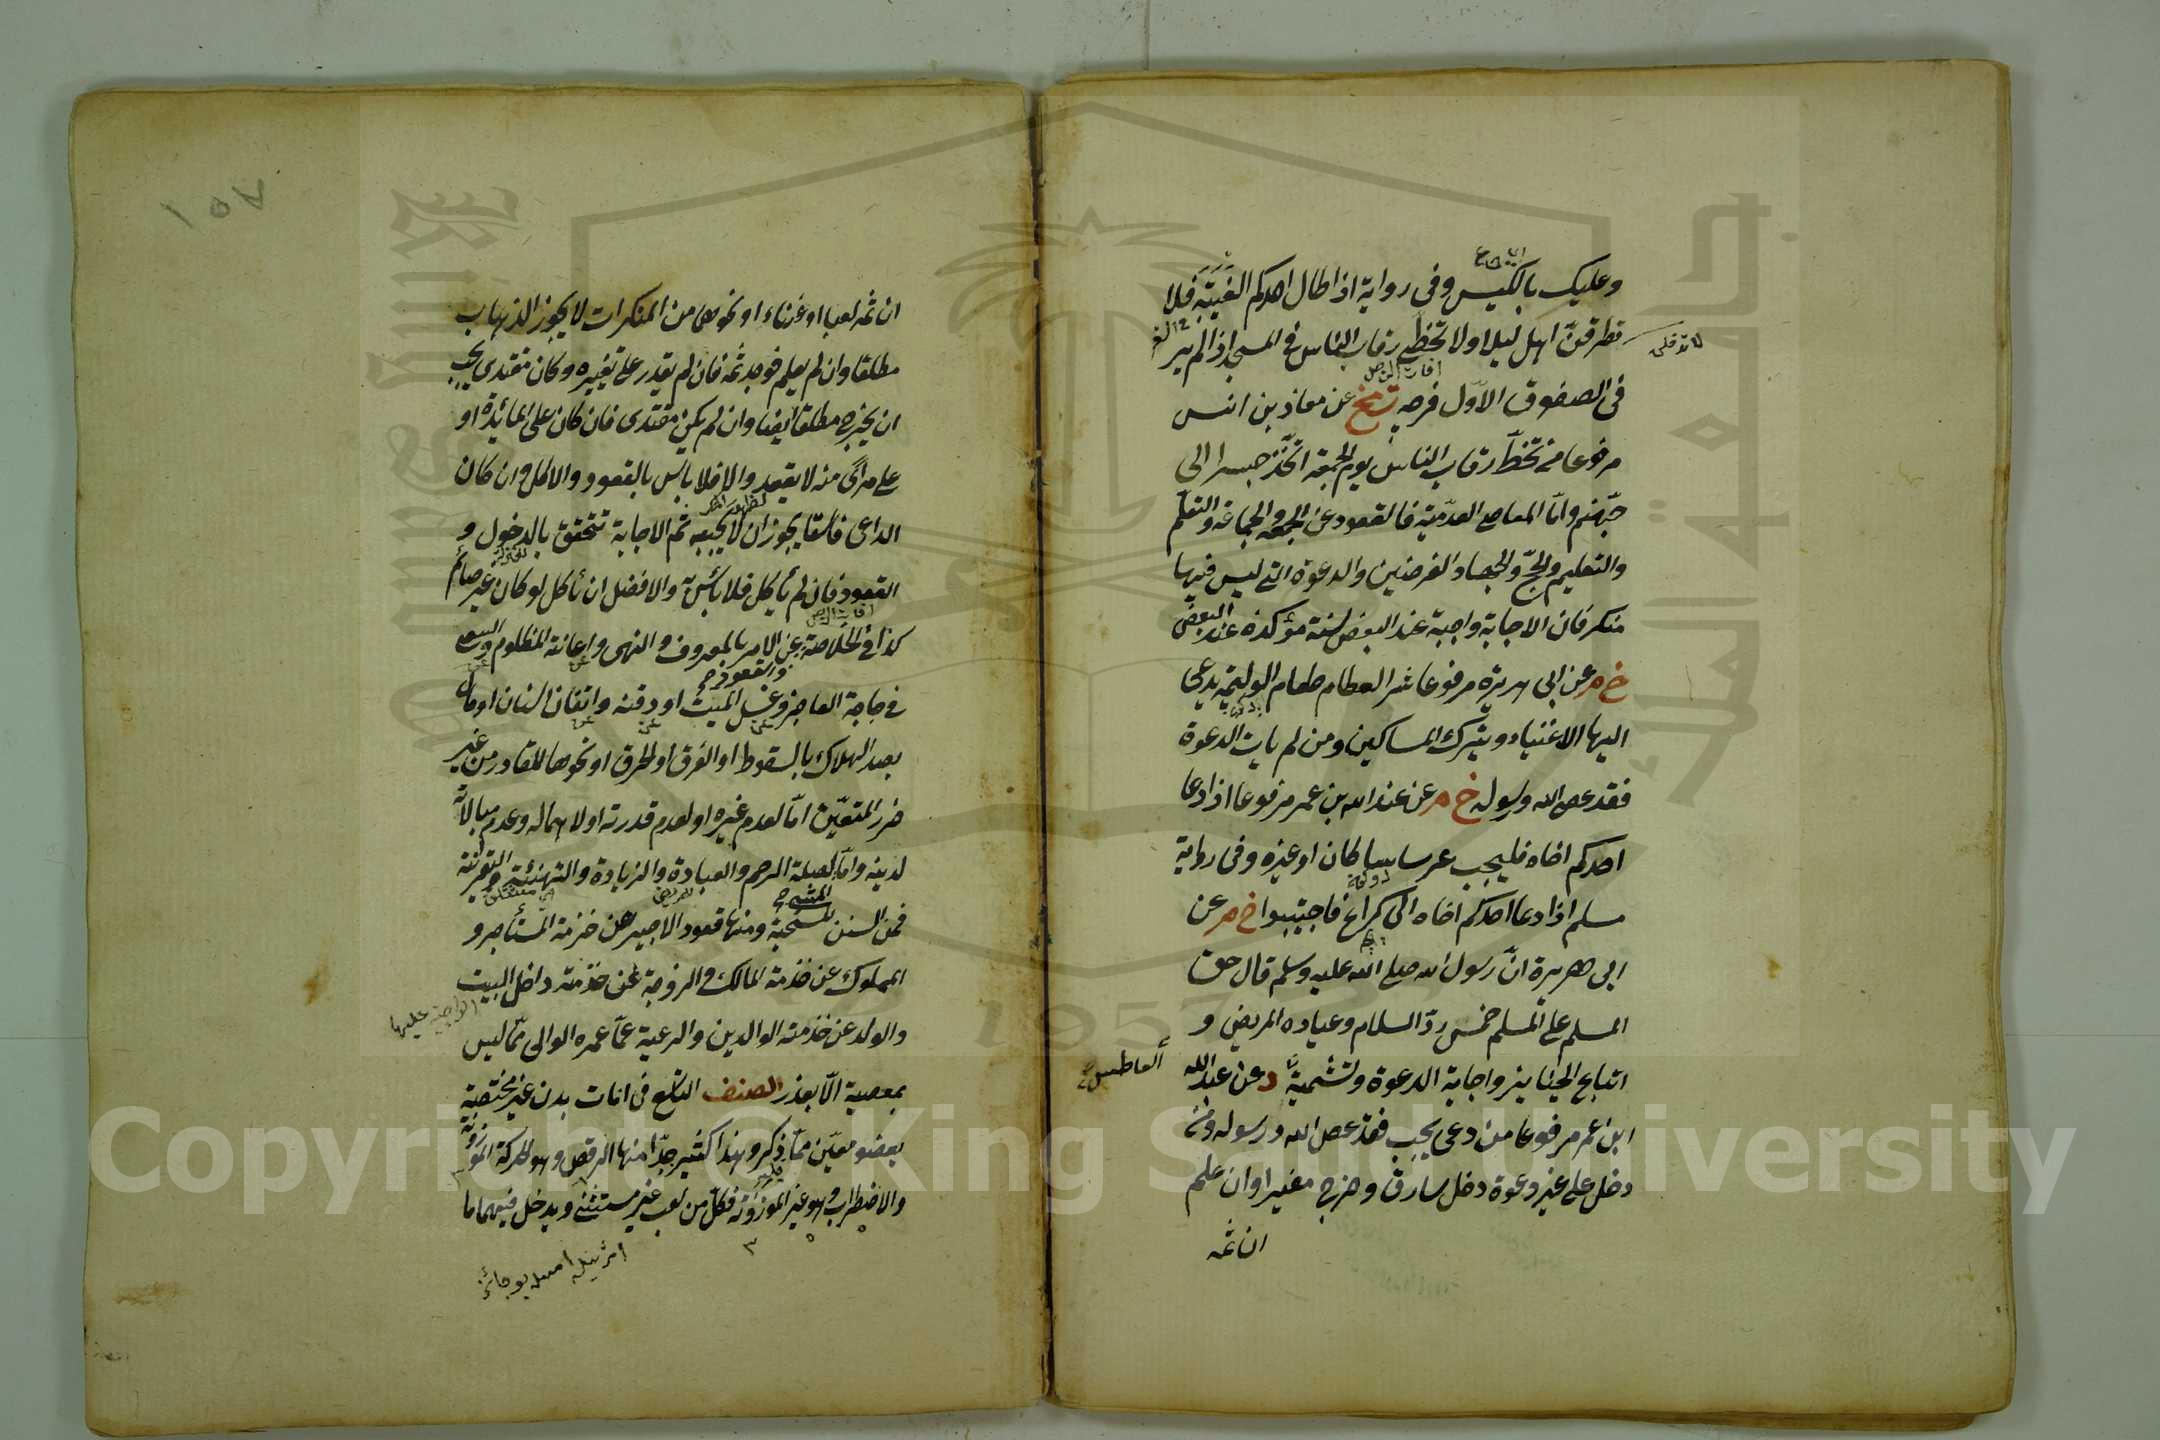 وعليك بالكيس وفى رواية اذا طال احدكم الغيبة فلا
تطرقن اهل ليلا ولا تخطى رقاب الناس فى المسجد اذا لم ير
فى الصفوف الاول فرجه ت مج عن معاذ بن انس
مرفوعا من تخطى رقاب الناس يوم الجمعة اتخذ جسرا الى
جهنم واما المعاصى العدمية فالقعود عن الجمعة والجماعة والتعلم
والتعليم والحج والجهاد الفرضين والدعوة التى ليس فيها
منكر فان الاجابة واجبة عند البعض لسنة مؤكدة عند البعض
خ م عن ابى هريرة مرفوعا شر الطعام طعام الوليمة يدعى
اليها الاغنياء ويترك المساكين ومن لم يأت الدعوة
فقد عصى الله ورسوله خ م عن عبد الله بن عمر مرفوعا اذا دعا
احدكم اخاه فليجب عرسا كان او غيره وفى رواية
مسلم اذا دعا احدكم اخاه الى كراع فاجيبوا خ م عن
ابى هريرة ان رسول الله صلى الله عليه وسلم قال حق
المسلم على المسلم خمس رد السلام وعيادة المريض و
اتباع الجنايز واجابة الدعوة وتشميت د عن عبد الله
العاطس صح
ابن عمر مرفوعا من دعى يجب فقد عصى الله ورسوله ومن
دخل على غير دعوة دخل سارقا وخرج مغيرا وان علم
ان ثمه
١٥٧
ان ثمه لعبا او غناء او نحوهما من المنكرات لا يجوز الذهاب
مطلقا وان لم يعلم فوجد ثمه فان لم يقدر على تغييره وكان مقتدى يجب
ان يخرج مطلقا ايضا وان لم يكن مقتدى فان كان على المائدة او
على مرأى منه لا يقعد والا فلا بأس بالقعود والاكل وان كان
الداعى فاسقا يجوز ان لا يجيبه ثم الاجابة تتحقق بالدخول و
القعود فان لم يأكل فلا بأس والافضل ان يأكل لو كان غير صائم
كذا فى الخلاصة عن الامر بالمعروف والنهى واعانة المظلوم والسعى
والقعود صح
فى حاجة العاجز وغسل الميت او دفنه وانقاذ انسان او مال
بصدد الهلاك بالسقوط او الغرق او الحرق او نحوها للقادر من غير
ضرر المتعين اما لعدم غيره او لعدم قدرته او لاهماله وعدم مبالاته
لدينه واما لصلة الرحم والعيادة والزيادة والتهنئة والتعزية
فمن السنن المستحبة ومنها قعود الاجير عن خدمة المستأجر و
المملوك عن خدمة المالك والزوجة عن خدمة داخل البيت
الواجبة عليها
والولد عن خدمة الوالدين والرعية عما عمره الوالى مما ليس
بمعصية الا بعذر الصنف التاسع فى افات بدن غير مختصة
بعضو معين مما ذكر وهذا كثير جدا منها الرقص وهو الحركة الموزونة
والاضطراب وهو غير الموزونة فكل من لعب غير مستثنى ويدخل فيهما ما
Copyright © King Saud University
1957
جامعة الملك سعود